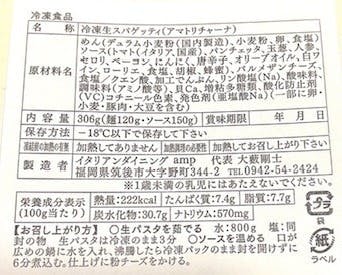 冷凍食品
名称 冷凍生スパゲッティ(アマトリチャーナ)
原材料名 めん(デュラム小麦粉(国内製造)、小麦粉、卵、食塩)
ソース(トマト(イタリア、国産)、パンチェッタ、玉葱、人参、
セロリ、ベーコン、にんにく、唐辛子、オリーブオイル、白ワ
イン、ローリエ、食塩、胡椒、蜂蜜)、パルメザンチーズ、
食塩/クエン酸、加工でん粉、リン酸塩(Na)、酸味料、
調味料(アミノ酸等)、貝Ca、増粘多糖類、酸化防止剤
(VC)コチニール色素、発色剤(亜硝酸Na)(一部に卵・
小麦・豚肉・大豆を含む)
内容量 306g(麺120g・ソース150g) 賞味期限 年 月 日
保存方法 -18℃以下で保存して下さい
凍結前加熱の有無 加熱してありません 加熱調理の必要性 加熱してお召し上がり下さい
製造者 イタリアンダイニング amp 代表 大薮剛士
福岡県筑後市大字野町344-2 TEL.0942-54-2424
※1歳未満の乳児にはあたえないでください。
栄養成分表示 熱量:222kcal たんぱく質:7.4g 脂質:7.7g
(100g当たり) 炭水化物:30.7g ナトリウム:570mg
【お召し上がり方】 ○生パスタを茹でる 水:800g 塩:同
封の物 生パスタは冷凍のまま3分 ○ソースを温める 口が
広めの鍋に水を入れ、沸騰したら冷凍パックのまま封を開けずに
6分煮込む。仕上げに粉チーズをかける。
プラ
袋
紙
ラベル